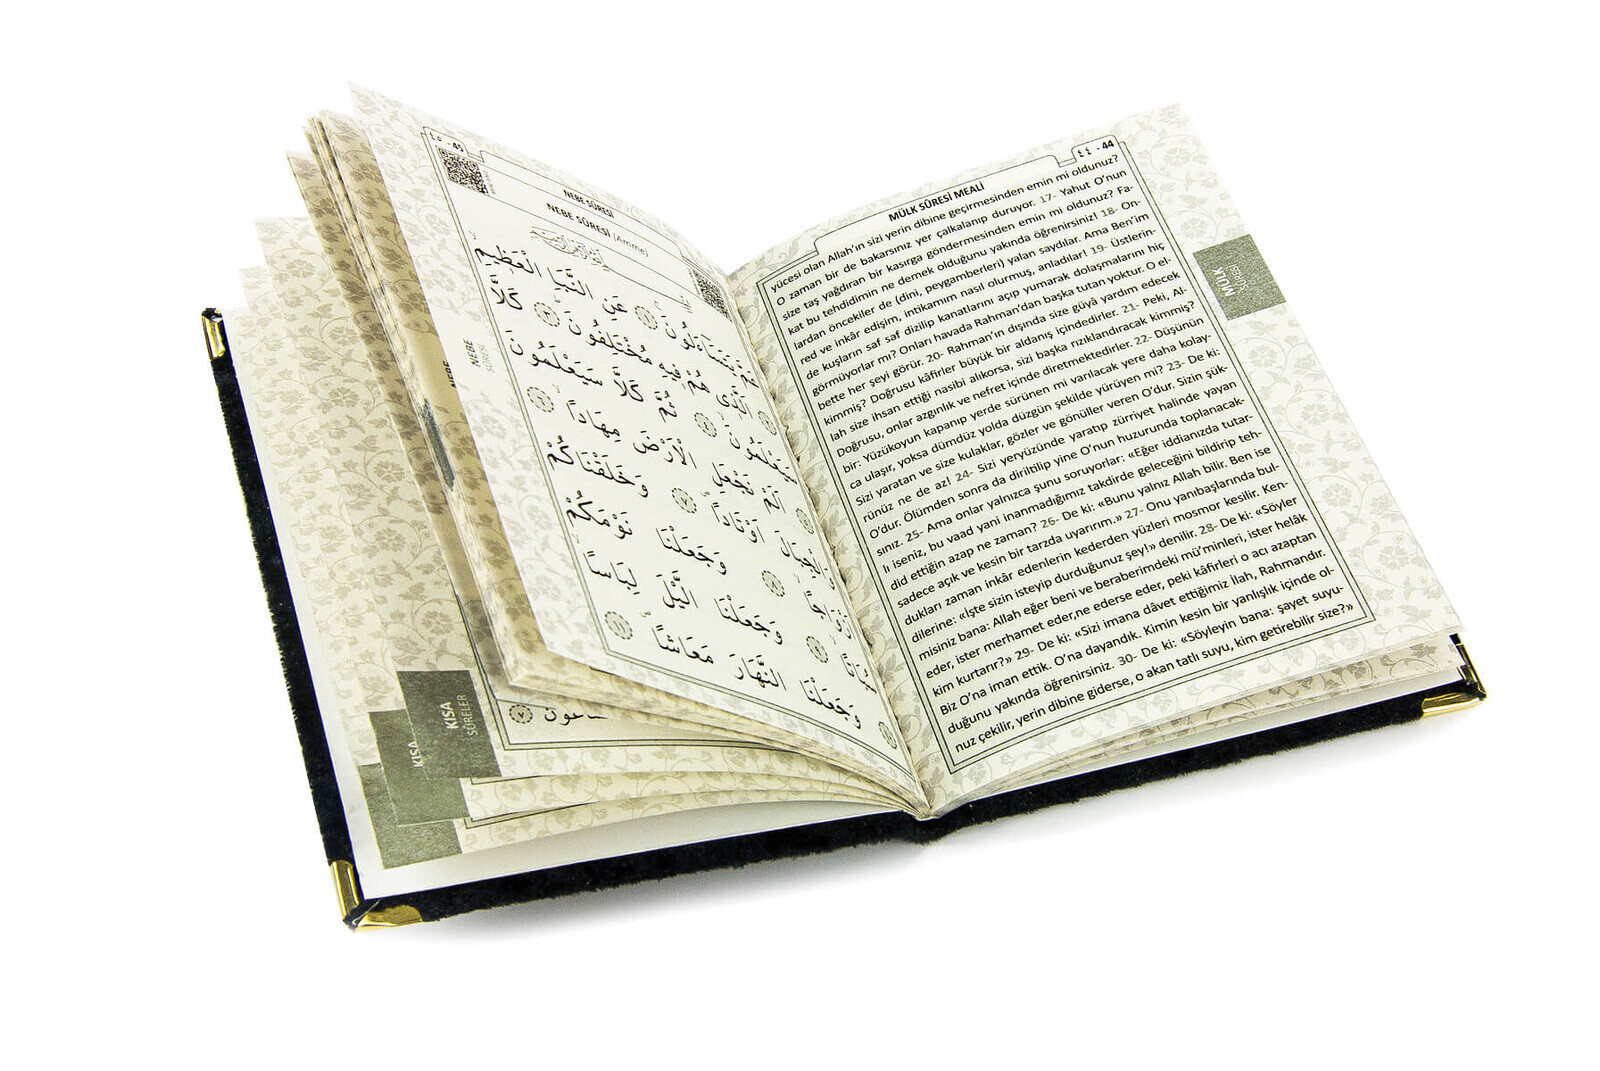 ٤٥ - 45
NEBE SÛRESİ
NEBE SÛRESİ (Amme)
عَمَّ يَتَسَاءَلُونَ ﴿١﴾ عَنِ النَّبَإِ الْعَظِيمِ
﴿٢﴾ اَلَّذِي هُمْ فِيهِ مُخْتَلِفُونَ ﴿٣﴾ كَلَّا
سَيَعْلَمُونَ ﴿٤﴾ ثُمَّ كَلَّا سَيَعْلَمُونَ
﴿٥﴾ اَلَمْ نَجْعَلِ الْاَرْضَ مِهَاداً ﴿٦﴾
وَالْجِبَالَ اَوْتَاداً ﴿٧﴾ وَخَلَقْنَاكُمْ
اَزْوَاجاً ﴿٨﴾ وَجَعَلْنَا نَوْمَكُمْ
سُبَاتاً ﴿٩﴾ وَجَعَلْنَا الَّيْلَ لِبَاساً
﴿١٠﴾ وَجَعَلْنَا النَّهَارَ مَعَاشاً ﴿١١﴾
NEBE
SÛRESİ
KISA
SÛRELER
KISA
٤٤ - 44
MÜLK SÛRESİ MEALİ
yücesi olan Allah'ın sizi yerin dibine geçirmesinden emin mi oldunuz?
O zaman bir de bakarsınız yer çalkalanıp duruyor. 17- Yahut O'nun
size taş yağdıran bir kasırga göndermesinden emin mi oldunuz? Fa-
kat bu tehdidimin ne demek olduğunu yakında öğrenirsiniz! 18- On-
lardan öncekiler de (dini, peygamberleri) yalan saydılar. Ama Ben'im
red ve inkâr edişim, intikamım nasıl olurmuş, anladılar! 19- Üstlerin-
de kuşların saf saf dizilip kanatlarını açıp yumarak dolaşmalarını hiç
görmüyorlar mı? Onları havada Rahman'dan başka tutan yoktur. O el-
bette her şeyi görür. 20- Rahman'ın dışında size güyâ yardım edecek
kimmiş? Doğrusu kâfirler büyük bir aldanış içindedirler. 21- Peki, Al-
lah size ihsan ettiği nasibi alıkorsa, sizi başka rızıklandıracak kimmiş?
Doğrusu, onlar azgınlık ve nefret içinde diretmektedirler. 22- Düşünün
bir: Yüzükoyun kapanıp yerde sürünen mi varılacak yere daha kolay-
ca ulaşır, yoksa dümdüz yolda düzgün şekilde yürüyen mi? 23- De ki:
Sizi yaratan ve size kulaklar, gözler ve gönüller veren O'dur. Sizin şük-
rünüz ne de az! 24- Sizi yeryüzünde yaratıp zürriyet halinde yayan
O'dur. Ölümden sonra da diriltilip yine O'nun huzurunda toplanacak-
sınız. 25- Ama onlar yalnızca şunu soruyorlar: «Eğer iddianızda tutar-
lı iseniz, bu vaad yani inanmadığımız takdirde geleceğini bildirip teh-
did ettiğin azap ne zaman? 26- De ki: «Bunu yalnız Allah bilir. Ben ise
sadece açık ve kesin bir tarzda uyarırım.» 27- Onu yanıbaşlarında bul-
dukları zaman inkâr edenlerin kederden yüzleri mosmor kesilir. Ken-
dilerine: «İşte sizin isteyip durduğunuz şey!» denilir. 28- De ki: «Söyler
misiniz bana: Allah eğer beni ve beraberimdeki mü'minleri, ister helâk
eder, ister merhamet eder,ne ederse eder, peki kâfirleri o acı azaptan
kim kurtarır?» 29- De ki: «Sizi imana dâvet ettiğimiz İlah, Rahmandır.
Biz O'na iman ettik. O'na dayandık. Kimin kesin bir yanlışlık içinde ol-
duğunu yakında öğrenirsiniz. 30- De ki: «Söyleyin bana: şayet suyu-
nuz çekilir, yerin dibine giderse, o akan tatlı suyu, kim getirebilir size?»
MÜLK
SÛRESİ